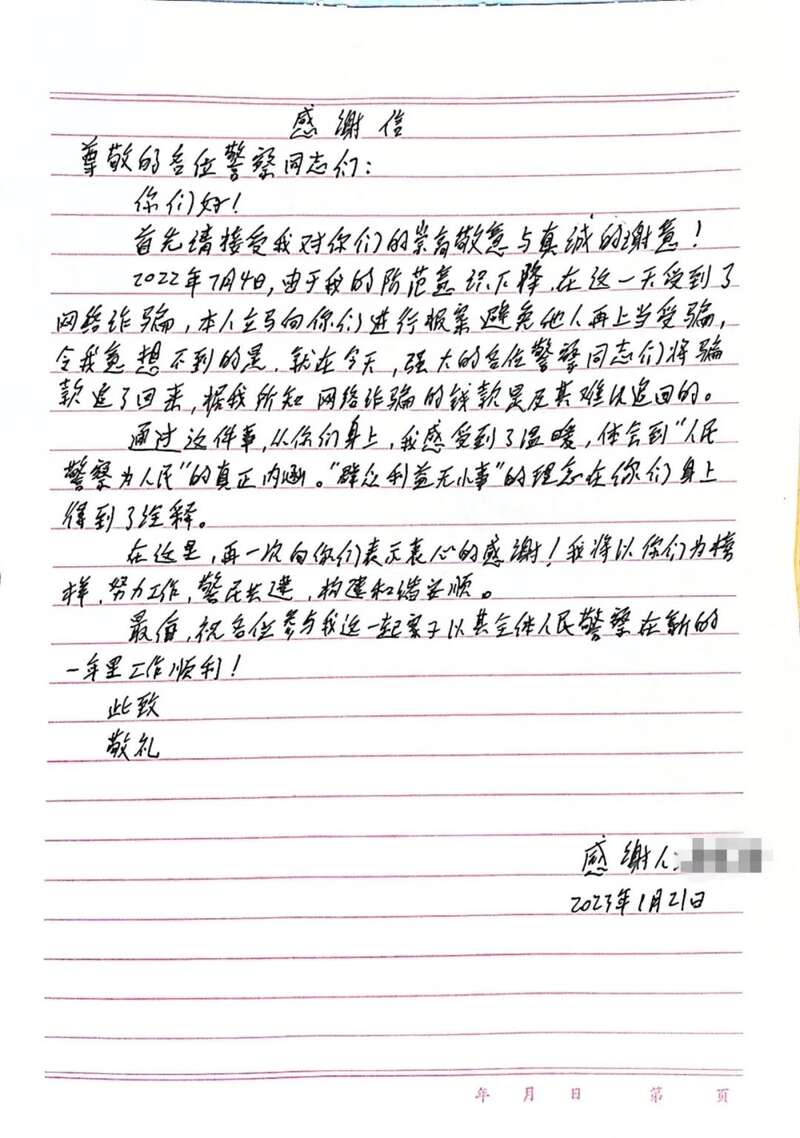 感谢信
尊敬的各位警察同志们：
你们好！
首先请接受我对你们的崇高敬意与真诚的谢意！
2022年7月4日，由于我的防范意识下降，在这一天受到了
网络诈骗，本人立马向你们进行报案避免他人再上当受骗，
令我意想不到的是，就在今天，强大的各位警察同志们将骗
款追了回来，据我所知网络诈骗的钱款是及其难以追回的。
通过这件事，从你们身上，我感受到了温暖，体会到“人民
警察为人民”的真正内涵。“群众利益无小事”的理念在你们身上
得到了诠释。
在这里，再一次向你们表示衷心的感谢！我将以你们为榜
样，努力工作，警民共建，构建和谐安顺。
最后，祝各位参与我这一起案子以其全体人民警察在新的
一年里工作顺利！
此致
敬礼
感谢人：
2023年1月21日
年 月 日 第 页